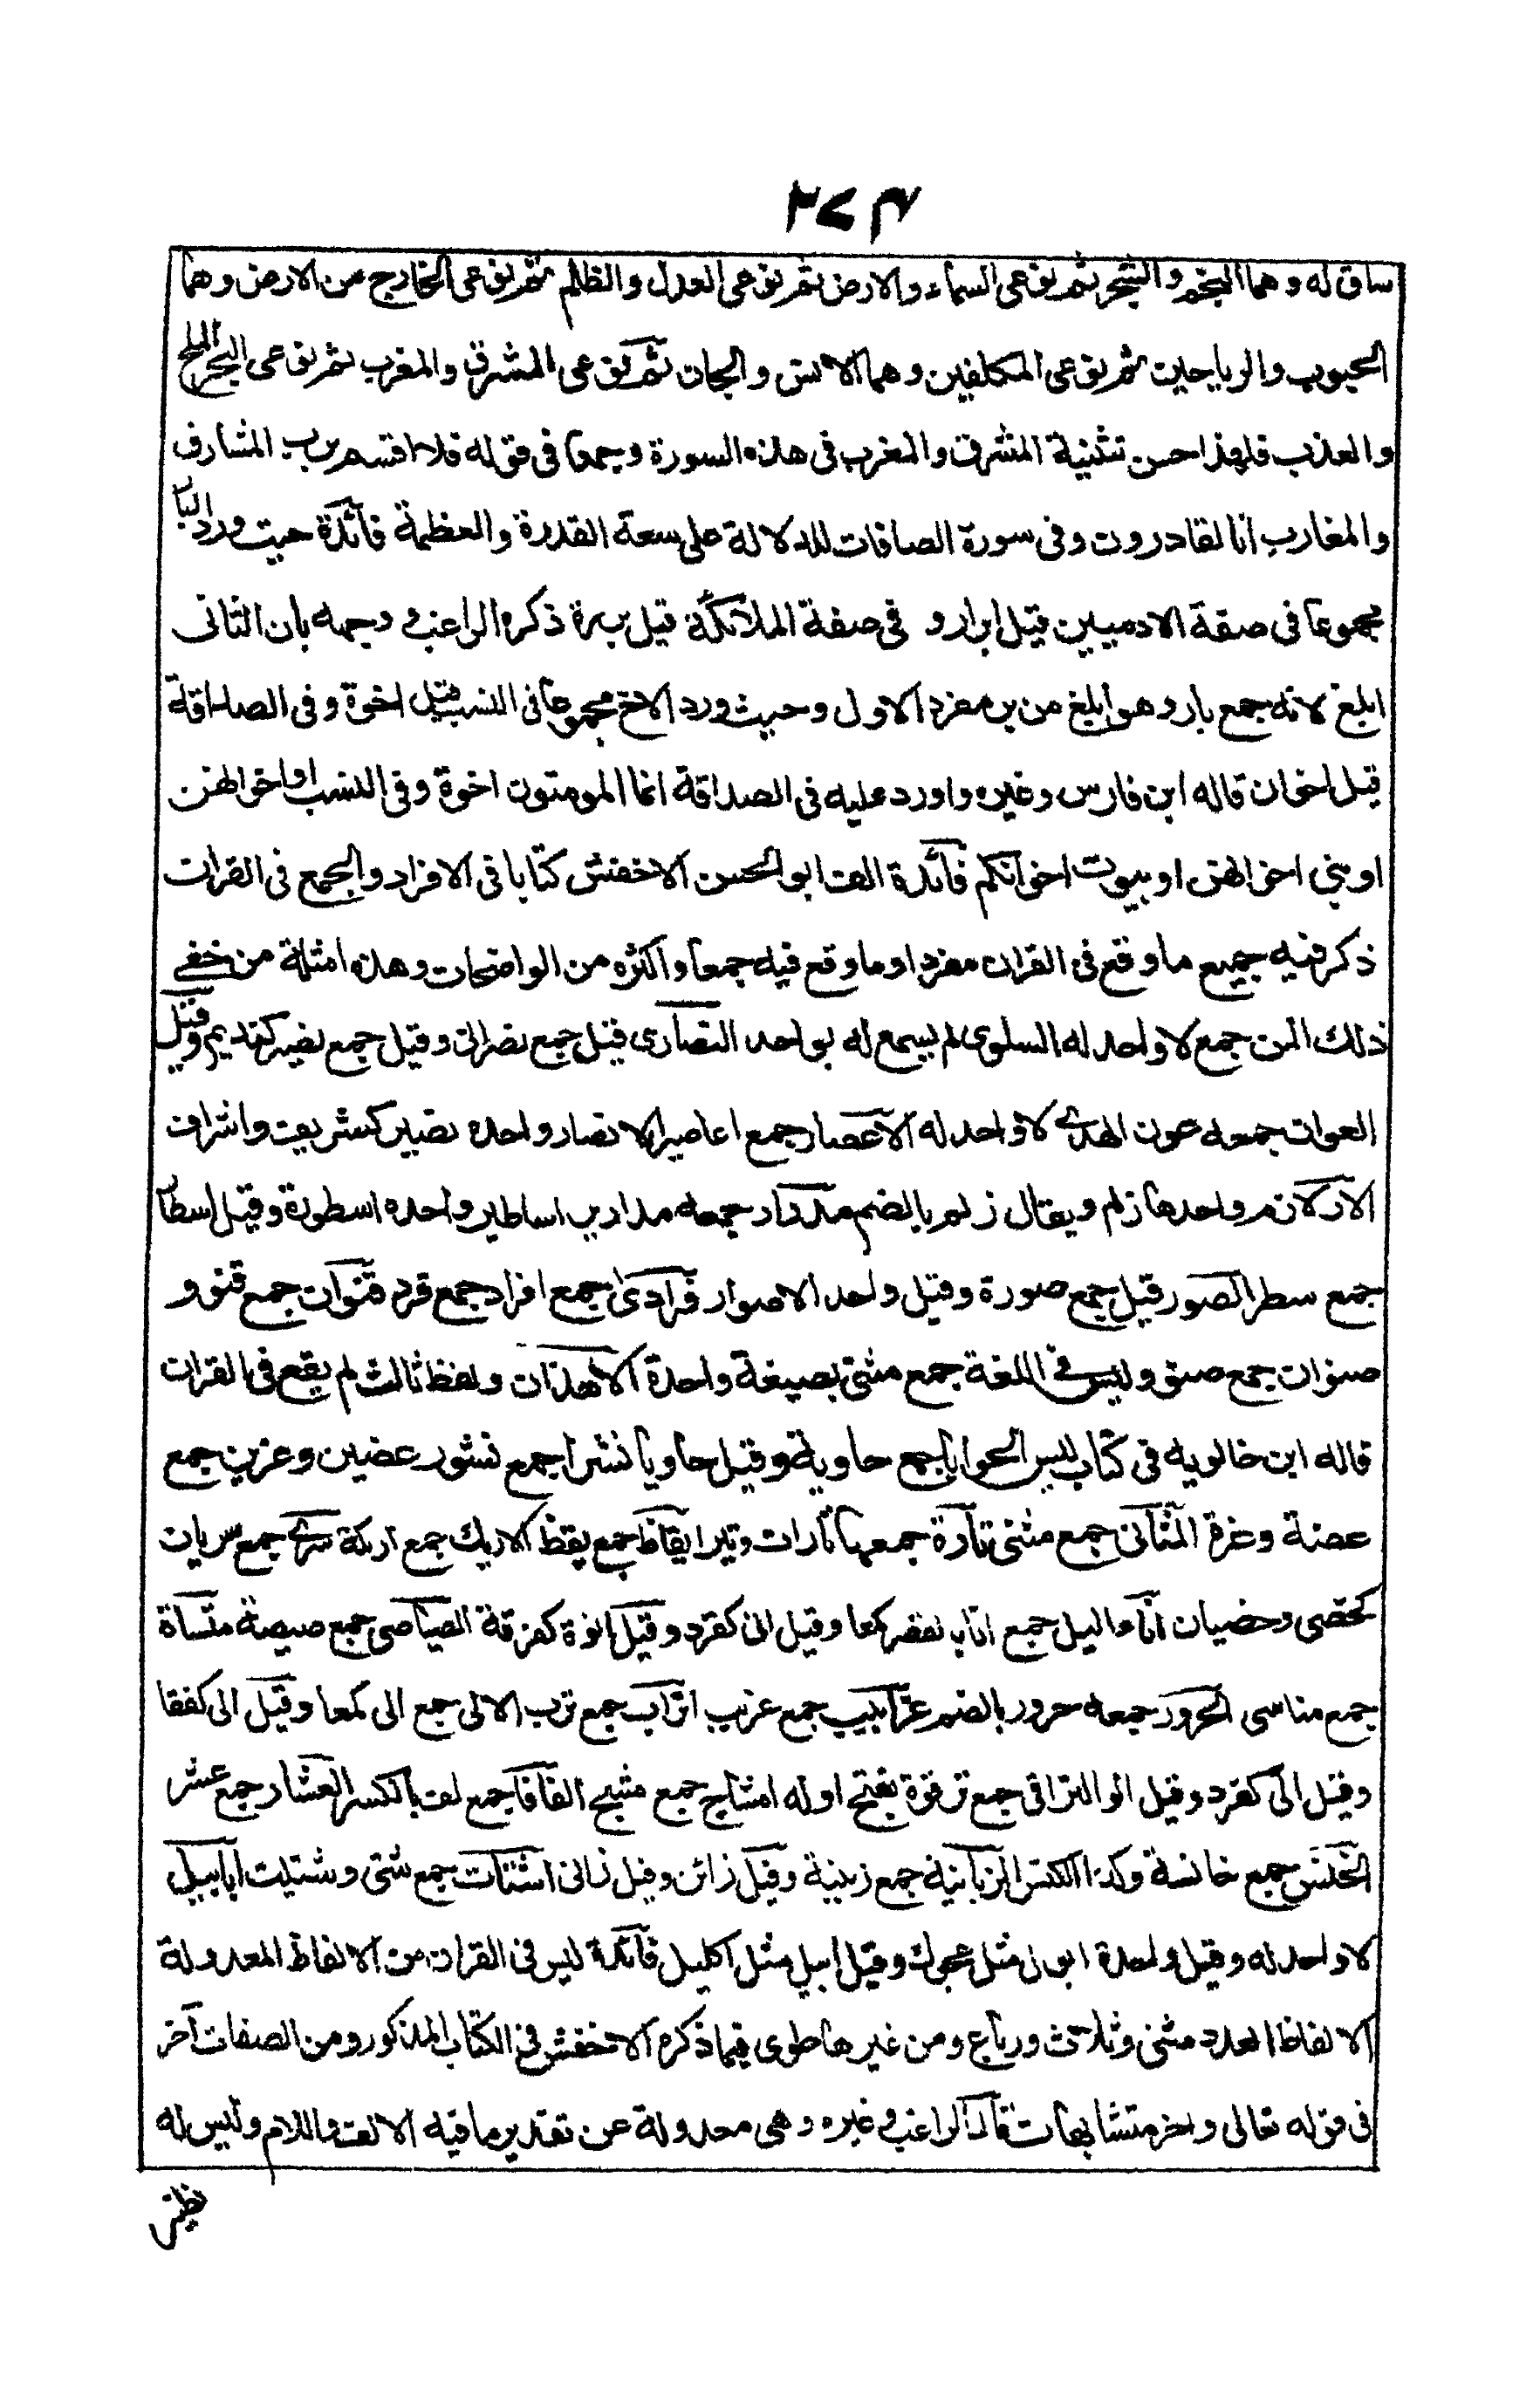 ٣٧٤
ساق له وهما النجم والشجر ثم نوعى السماء والارض ثم نوعى العدل والظلم ثم نوعى الخارج من الارض وهما
الحبوب والرياحين ثم نوعى المكلفين وهما الانس والجان ثم نوعى المشرق والمغرب ثم نوعى البحر الملح
والعذب فلهذا حسن تثنية المشرق والمغرب فى هذه السورة وجمعا فى قوله فلا اقسم برب المشارق
والمغارب انا لقادرون وفى سورة الصافات للدلالة على سعة القدرة والعظمة فائدة حيث ورد البار
مجموعا فى صفة الادميين قيل ابرار و فى صفة الملائكة قيل بررة ذكره الراغب وجهه بان الثانى
ابلغ لانه جمع بار وهو ابلغ من بر مفرد الاول وحيث ورد الاخ مجموعا فى النسب قيل اخوة وفى الصداقة
قيل اخوان قاله ابن فارس وغيره واورد عليه فى الصداقة انما المومنون اخوة وفى النسب او اخوانهن
او بنى اخوانهن او بيوت اخوانكم فائدة الف ابو الحسن الاخفش كتابا فى الافراد والجمع فى القران
ذكر فيه جميع ما وقع فى القران مفردا وما وقع فيه جمعا واكثره من الواضحات وهذه امثلة من خفى
ذلك المن جمع لا واحد له السلوى لم يسمع له بواحد النصارى قيل جمع نصرانى وقيل جمع نصير كنديم وقبيل
العوان جمعه عون الهدى لا واحد له الاعصار جمع اعاصير الانصار واحده نصير كشريف واشراف
الازلام واحدها زلم ويقال زلم بالضم مدرار جمعه مدارير اساطير واحده اسطورة وقيل اسطار
جمع سطر الصور قيل جمع صورة وقيل واحد الاصوار فرادى جمع افراد جمع فرد قنوان جمع قنو و
صنوان جمع صنو وليس فى اللغة جمع مثنى بصيغة واحدة الا هذان ولفظ ثالث لم يقع فى القران
قاله ابن خالويه فى كتاب ليس الحوايا جمع حاوية وقيل حاويا نشرا جمع نشور عضين وعزين جمع
عضة وعزة المثانى جمع مثنى تارة جمعها تارات وتير ايقاظ جمع يقظ الاريك جمع اريكة سرى جمع سريان
كخصى وخصيان اناء اليل جمع انا بالقصر كمعا وقيل انى كقرد وقيل انوة كفرقة الصياصى جمع صيصة منساة
جمع مناسى الحرور جمعه حرور بالضم غرابيب جمع غربيب اتراب جمع ترب الالى جمع الى كمعا وقيل الى كقفا
وقيل الى كقرد وقيل الو التراقى جمع ترقوة بفتح اوله امشاج جمع مشيج الفافا جمع لف بالكسر العشار جمع عشر
الخنس جمع خانسة وكذا الكنس الزبانية جمع زبنية وقيل زابن وقيل زبانى اشتات جمع شتى وشتيت ابابيل
لا واحد له وقيل واحدة ابول مثل عجول وقيل ابيل مثل اكليل فائدة ليس فى القران من الالفاظ المعدولة
الا لفاظ العدد مثنى وثلاث ورباع ومن غيرها طوى فيما ذكره الاخفش فى الكتاب المذكور ومن الصفات آخر
فى قوله تعالى واخر متشابهات قال الراغب وغيره وهى معدولة عن تقدير ما فيه الالف واللام وليس له
نظير